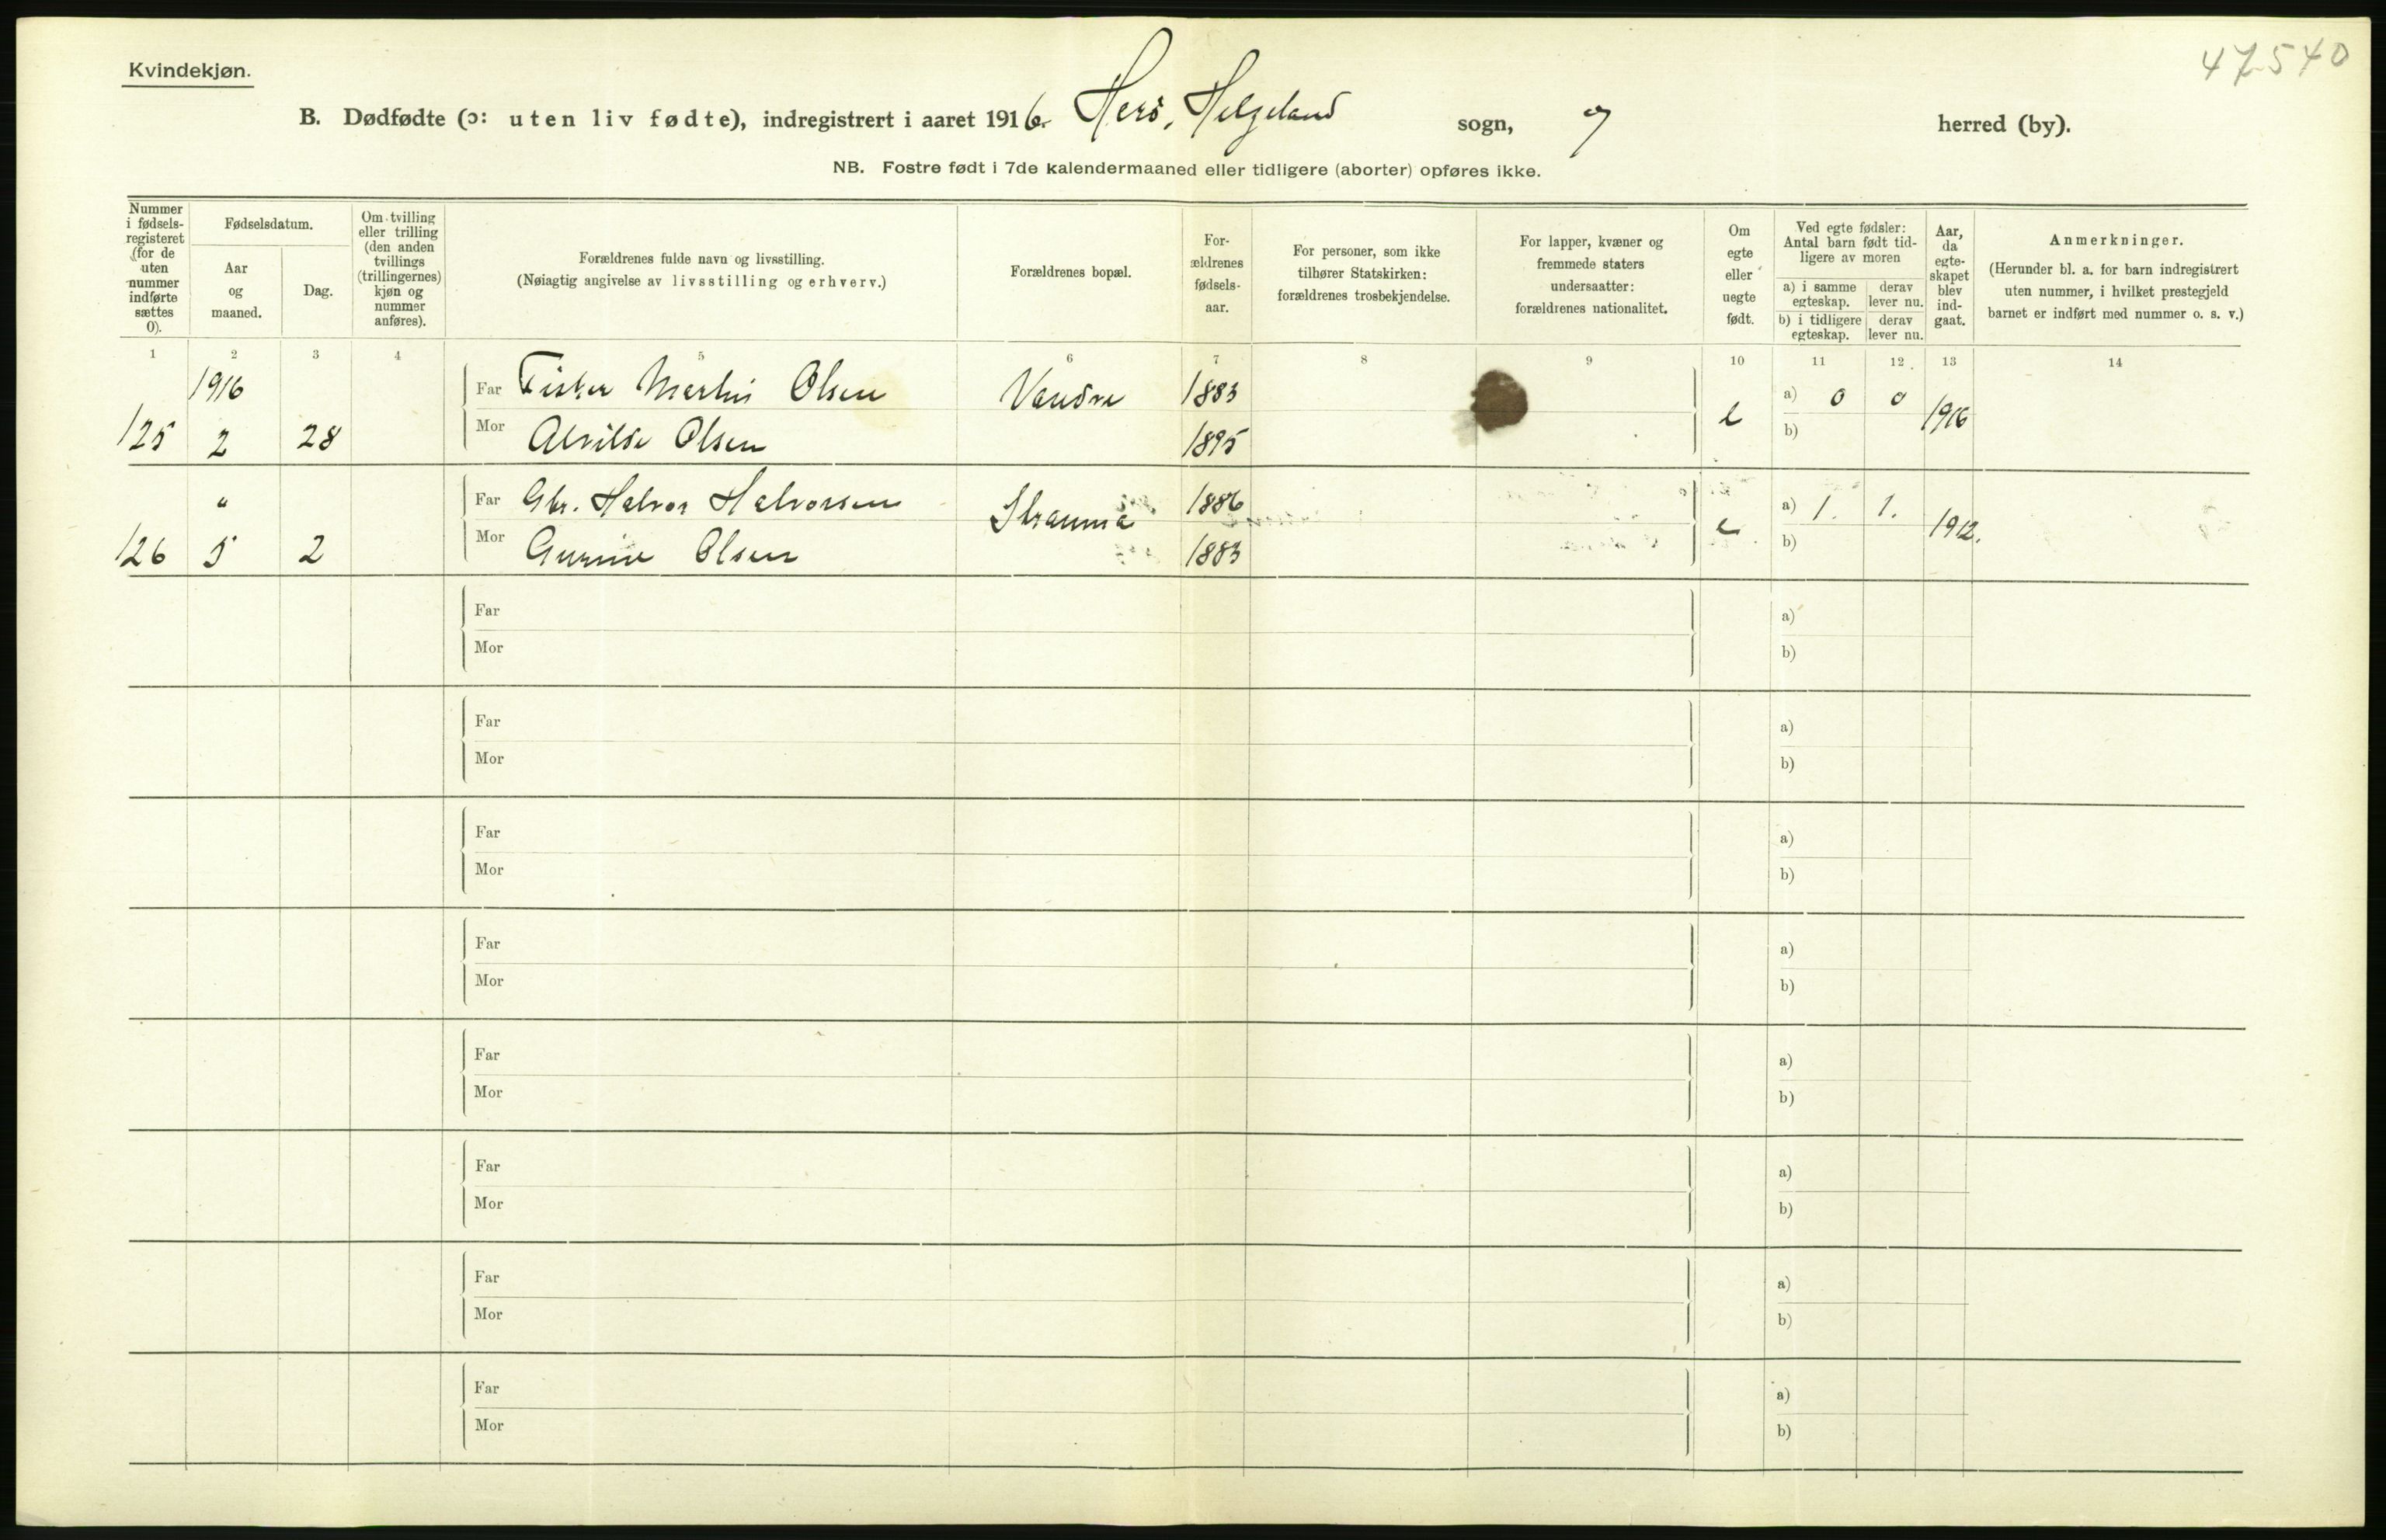 47540
Kvindekjøn.
B. Dødfødte (ɔ: uten liv fødte), indregistrert i aaret 1916. Herö, Helgeland sogn, og herred (by).
NB. Fostre født i 7de kalendermaaned eller tidligere (aborter) opføres ikke.
Nummer
i fødsels-
registeret
(for de
uten
nummer
indførte
sættes
0).
Fødselsdatum.
Aar
og
maaned.
Dag.
Om tvilling
eller trilling
(den anden
tvillings
(trillingernes)
kjøn og
nummer
anføres).
Forældrenes fulde navn og livsstilling.
(Nøiagtig angivelse av livsstilling og erhverv.)
Forældrenes bopæl.
For-
ældrenes
fødsels-
aar.
For personer, som ikke
tilhører Statskirken:
forældrenes trosbekjendelse.
For lapper, kvæner og
fremmede staters
undersaatter:
forældrenes nationalitet.
Om
egte
eller
uegte
født.
Ved egte fødsler:
Antal barn født tid-
ligere av moren
a) i samme
egteskap.
derav
lever nu.
b) i tidligere
egteskap.
derav
lever nu.
Aar,
da
egte-
skapet
blev
ind-
gaat.
Anmerkninger.
(Herunder bl. a. for barn indregistrert
uten nummer, i hvilket prestegjeld
barnet er indført med nummer o. s. v.)
1 2 3 4 5 6 7 8 9 10 11 12 13 14
1916 Far Fisker Martin Olsen Vandve 1883 a) 0 0
125 2 28 Mor Alvilde Olsen 1895 e b) 1916
" Far Gbr. Halvor Halvorsen Strauma 1886 a) 1. 1.
126 5 2 Mor Gurine Olsen 1883 e b) 1912.
Far a)
Mor b)
Far a)
Mor b)
Far a)
Mor b)
Far a)
Mor b)
Far a)
Mor b)
Far a)
Mor b)
Far a)
Mor b)
Far a)
Mor b)